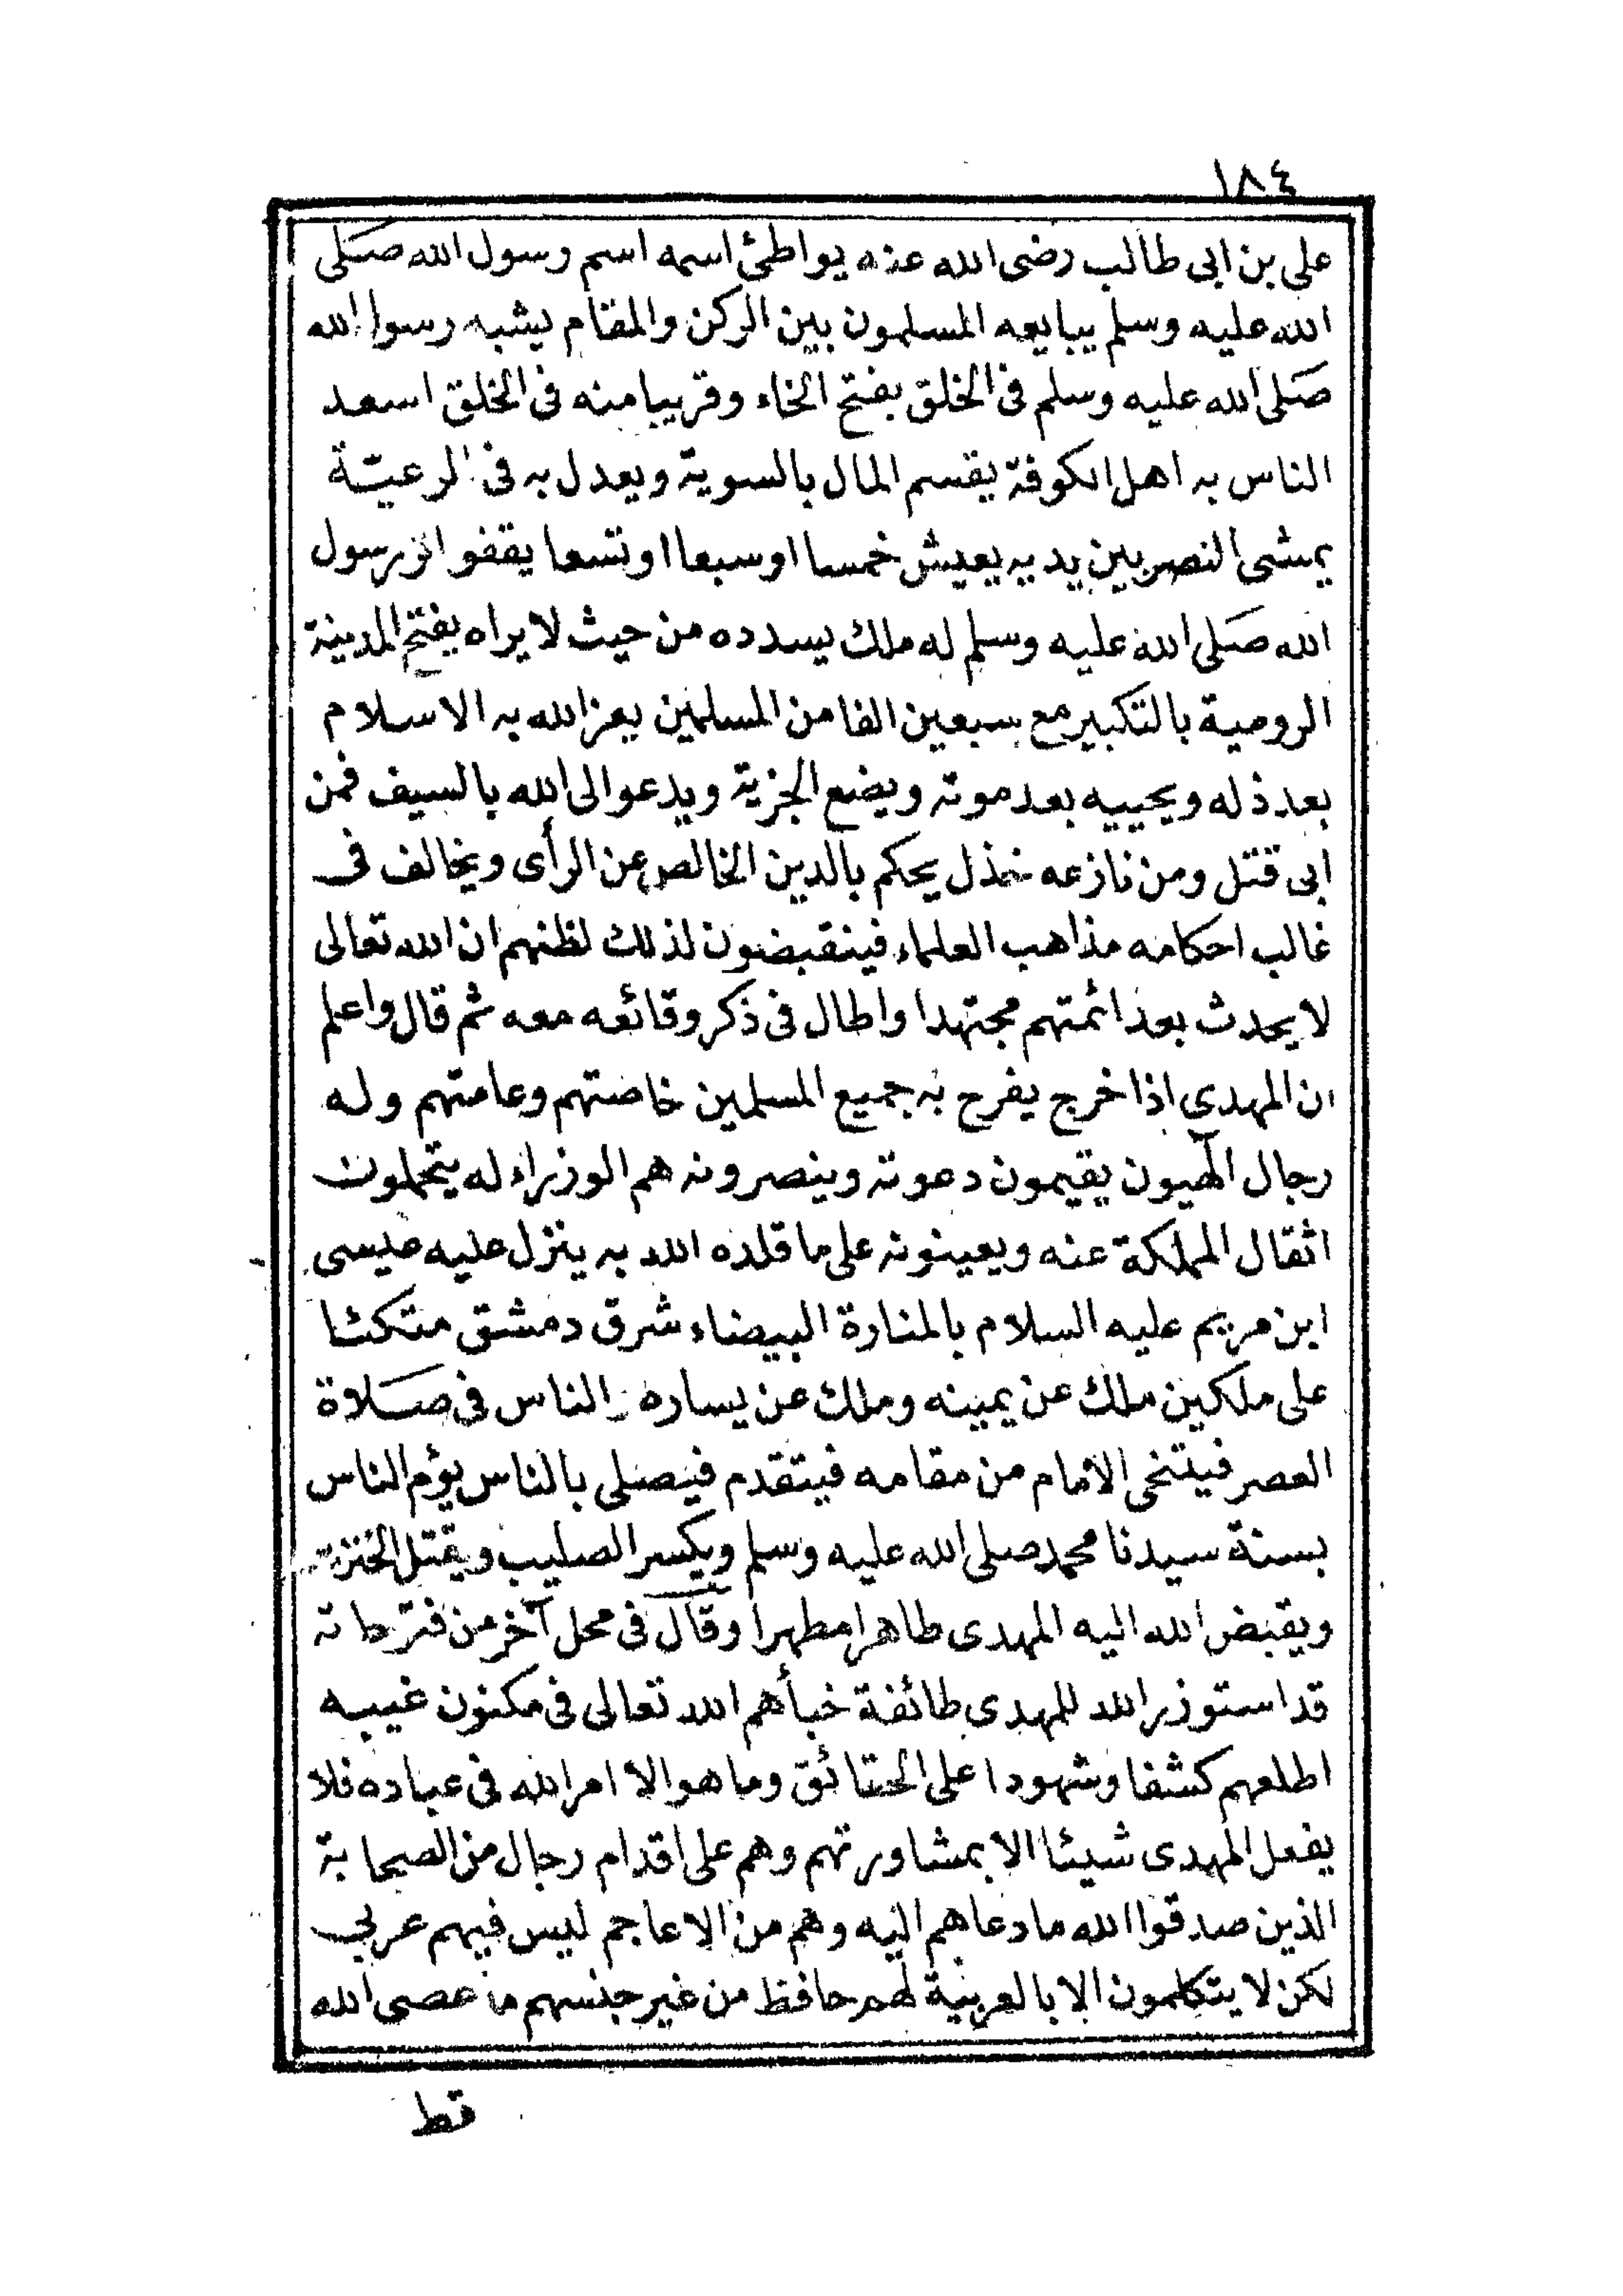 ١٨٤
على بن ابى طالب رضى الله عنه يواطئ اسمه اسم رسول الله صلى
الله عليه وسلم يبايعه المسلمون بين الركن والمقام يشبه رسول الله
صلى الله عليه وسلم فى الخلق بفتح الخاء وقريبا منه فى الخلق اسعد
الناس به اهل الكوفة يقسم المال بالسوية ويعدل به فى الرعية
يمشى النصر بين يديه يعيش خمسا او سبعا او تسعا يقفو اثر رسول
الله صلى الله عليه وسلم له ملك يسدده من حيث لا يراه يفتح المدينة
الرومية بالتكبير مع سبعين الفا من المسلمين يعز الله به الاسلام
بعد ذله ويحييه بعد موته ويضع الجزية ويدعو الى الله بالسيف فمن
ابى قتل ومن نازعه خذل يحكم بالدين الخالص عن الرأى ويخالف فى
غالب احكامه مذاهب العلماء فينقبضون لذلك لظنهم ان الله تعالى
لا يحدث بعد ائمتهم مجتهدا واطال فى ذكر وقائعه معه ثم قال واعلم
ان المهدى اذا خرج يفرح به جميع المسلمين خاصتهم وعامتهم وله
رجال الٓهيون يقيمون دعوته وينصرونه هم الوزراء له يتحملون
اثقال المملكة عنه ويعينونه على ما قلده الله به ينزل عليه عيسى
ابن مريم عليه السلام بالمنارة البيضاء شرق دمشق متكئا
على ملكين ملك عن يمينه وملك عن يساره والناس فى صلاة
العصر فيتنحى الامام من مقامه فيتقدم فيصلى بالناس يؤم الناس
بسنة سيدنا محمد صلى الله عليه وسلم ويكسر الصليب ويقتل
ويقبض الله اليه المهدى طاهرا مطهرا وقال فى محل آخر من فتوحاته
قد استوزر الله للمهدى طائفة خبأهم الله تعالى فى مكنون غيبه
اطلعهم كشفا وشهودا على الحقائق وما هو الا امر الله فى عباده فلا
يفعل المهدى شيئا الا بمشاورتهم وهم على اقدام رجال من الصحابة
الذين صدقوا الله ما دعاهم اليه وهم من الاعاجم ليس فيهم عربى
لكن لا يتكلمون الا بالعربية لهم حافظ من غير جنسهم ما عصى الله
قط